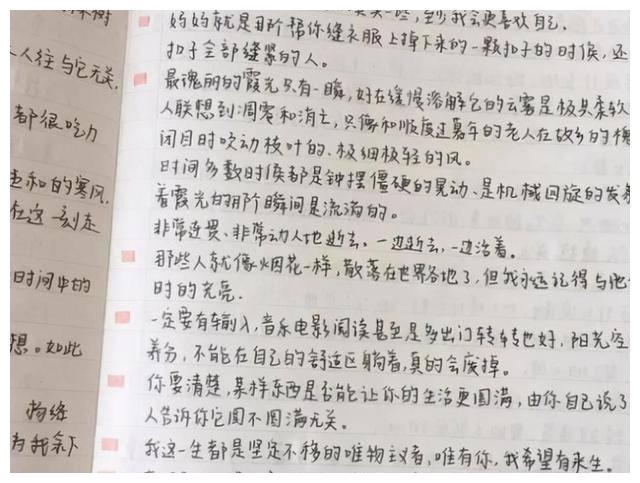 人往与它无关.
都很吃力
和的寒风.
在这一刻走
时间中的
想。如此
拘络
为我余下
些,至少我会更喜欢自己.
妈妈就是那个帮你缝衣服上掉下来的一颗扣子的时候,还
扣子全部缝紧的人。
最瑰丽的霞光只有一瞬,好在缓慢溶解它的云雾是极其柔软
人联想到凋零和消亡,只像和顺度过暮年的老人在故乡的槐
闭目时吹动枝叶的、极细极轻的风。
时间多数时候都是钟摆僵硬的晃动、是机械回旋的发条
着霞光的那个瞬间是流淌的。
非常连贯、非常动人地逝去,一边逝去,一边活着。
那些人就像烟花一样,散落在世界各地了,但我永远记得与他
时的光亮.
一定要有输入,音乐电影阅读甚至是多出门转转也好,阳光空
养分,不能在自己的舒适区躺着,真的会废掉。
你要清楚,某样东西是否能让你的生活更圆满,由你自己说了
人告诉你它圆不圆满无关。
我这一生都是坚定不移的唯物主义者,唯有你,我希望有来生。